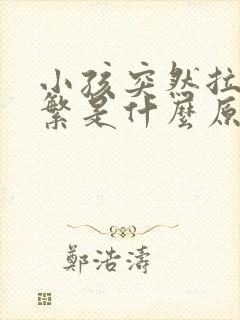 小孩突然拉
繁是什麼原
鄭浩濤